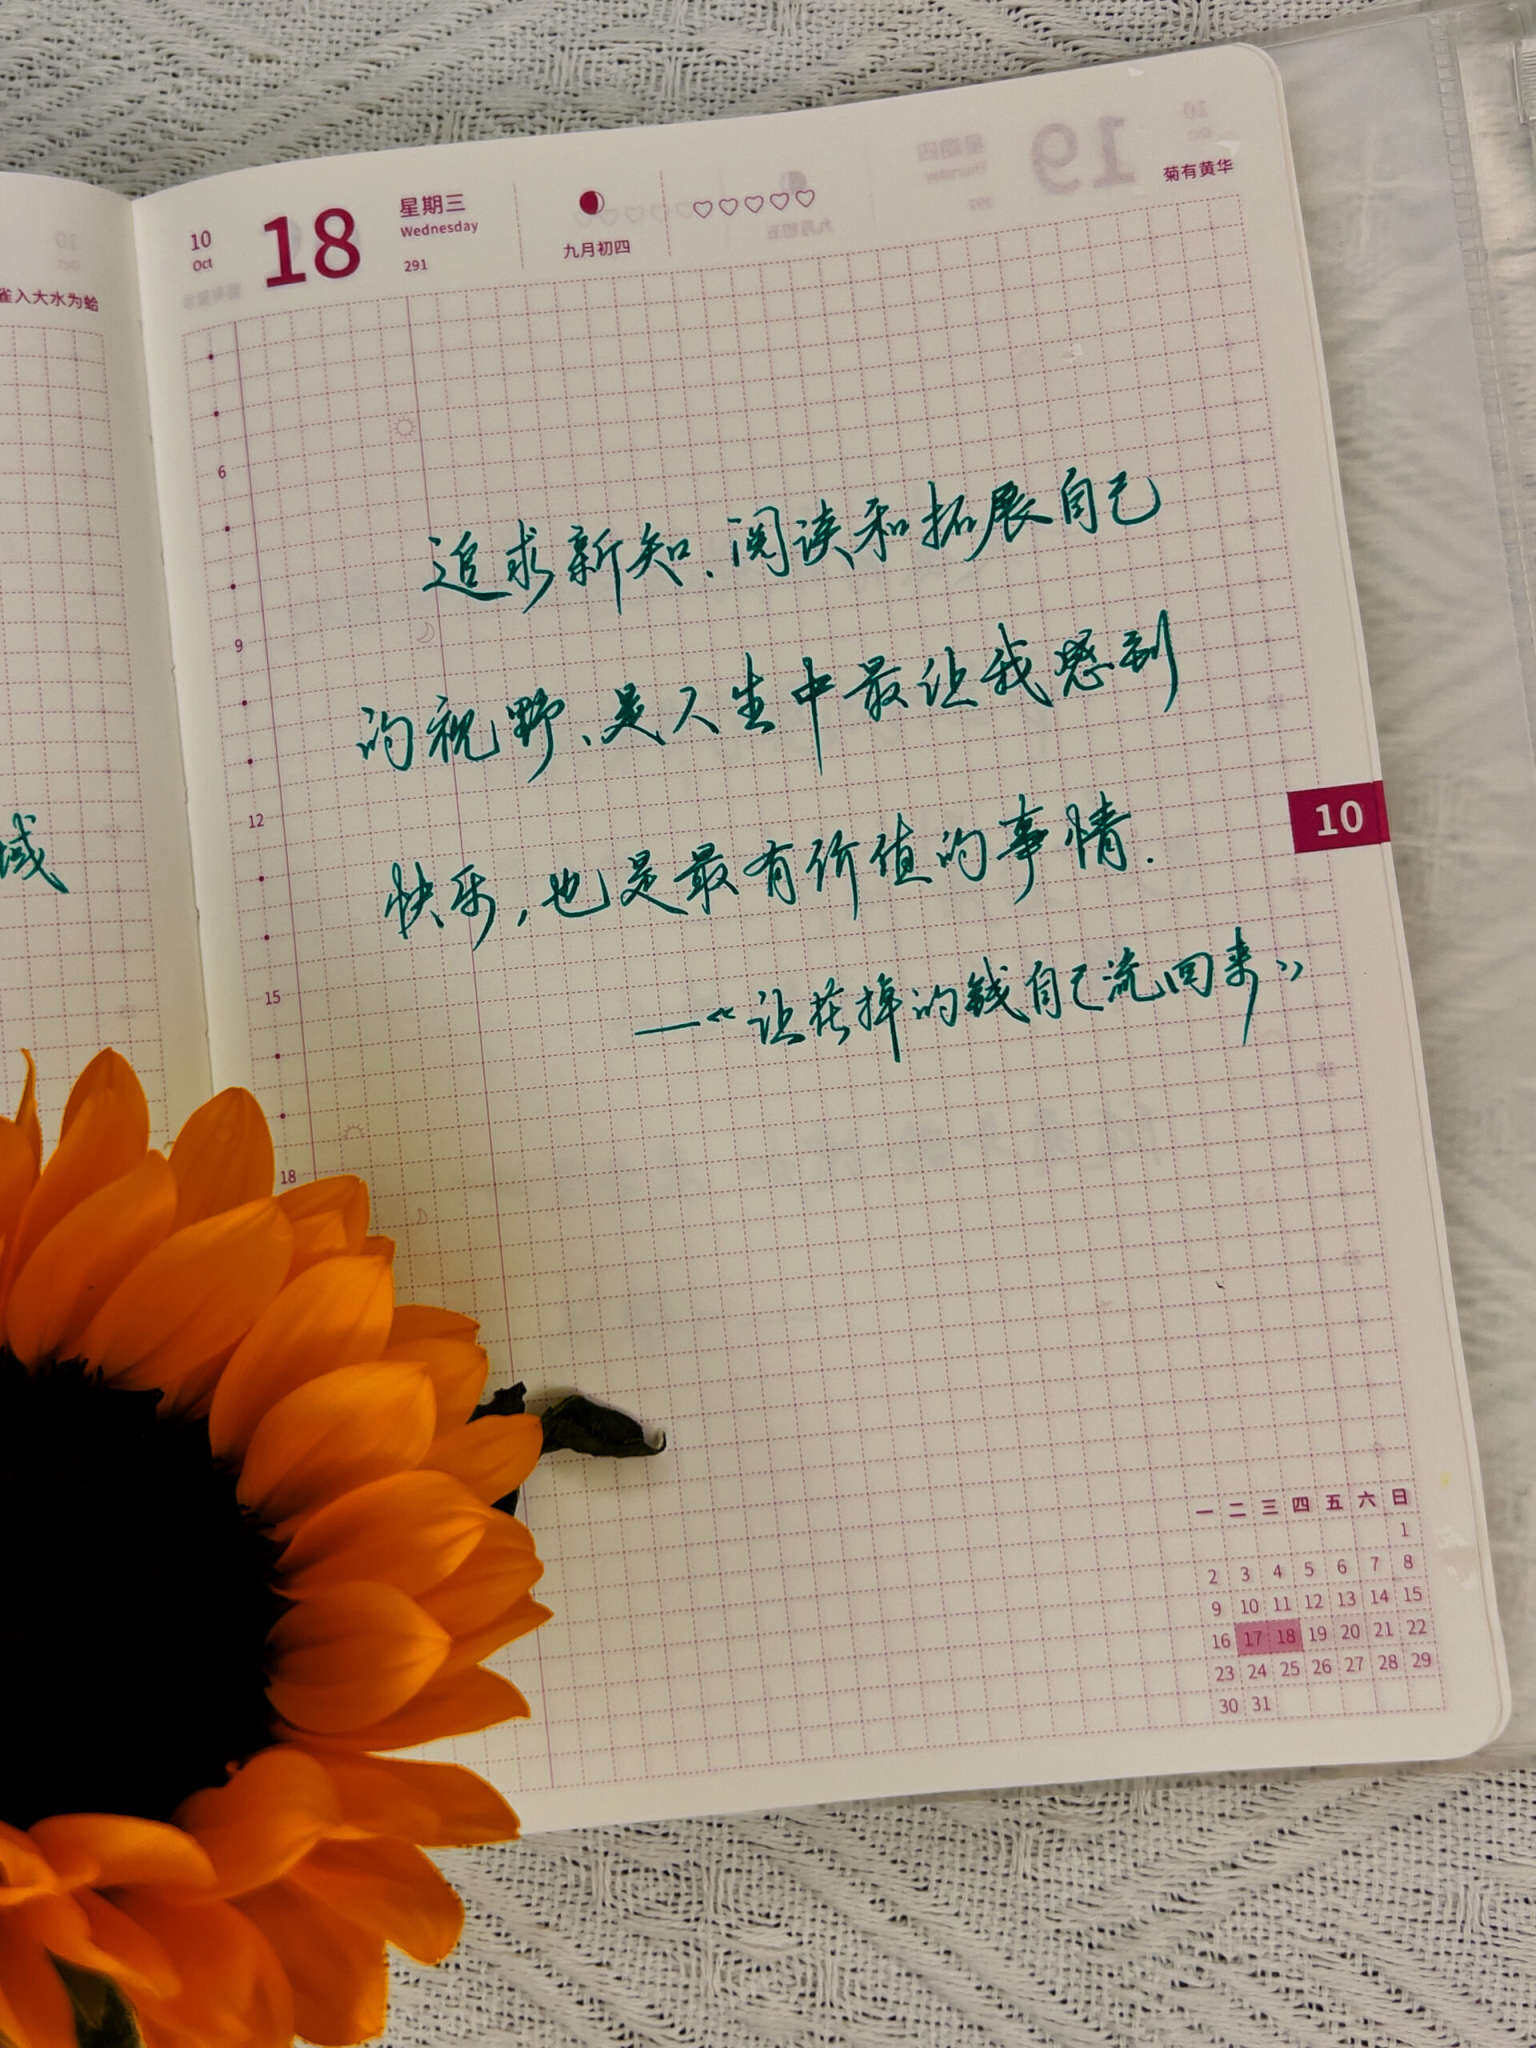 雀入大水为蛤
域
10
Oct
18
星期三
Wednesday
291
九月初四
菊有黄华
6
9
12
15
18
追求新知.阅读和拓展自己
的视野、是人生中最让我感到
快乐,也是最有价值的事情.
——《让花掉的钱自己流回来》
10
一 二 三 四 五 六 日
1
2 3 4 5 6 7 8
9 10 11 12 13 14 15
16 17 18 19 20 21 22
23 24 25 26 27 28 29
30 31